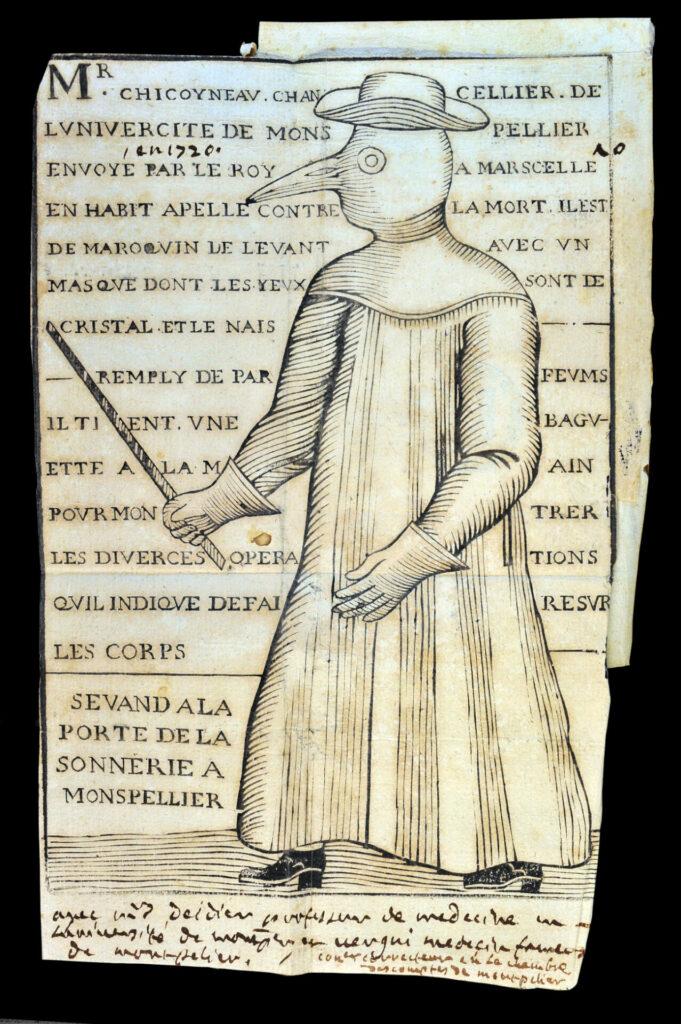 MR. CHICOYNEAV. CHANCELLIER. DE
LVNIVERCITE DE MONSPELLIER
en 1720.
ENVOYE PAR LE ROY A MARSCELLE
EN HABIT APELLE CONTRE LA MORT. IL EST
DE MAROQVIN DE LEVANT AVEC VN
MASQVE DONT LES YEVX SONT DE
CRISTAL ET LE NAIS
REMPLY DE PARFEVMS
IL TIENT. VNE BAGV-
ETTE A LA MAIN
POVR MONTRER
LES DIVERCES OPERATIONS
QVIL INDIQVE DE FAIRE SVR
LES CORPS
SE VAND A LA
PORTE DE LA
SONNERIE A
MONSPELLIER
avec mrs Deidier professeur de medecine en
luniversité de medecin
de montpelier.
en la chambre
des comptes de montpelier